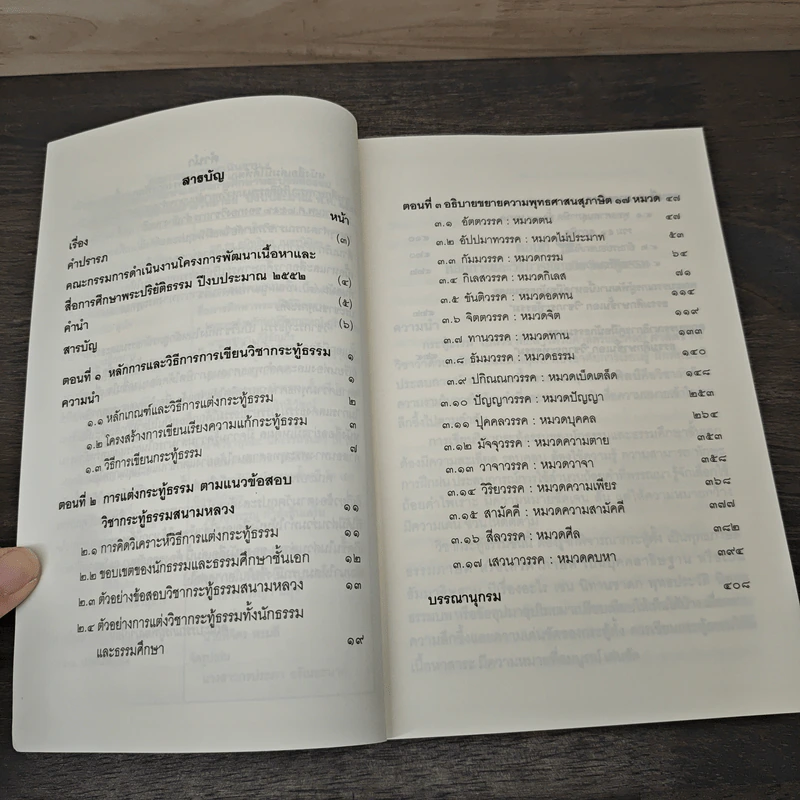 สารบัญ
เรื่อง หน้า
คำปรารภ (๓)
คณะกรรมการดำเนินงานโครงการพัฒนาเนื้อหาและ
สื่อการศึกษาพระปริยัติธรรม ปีงบประมาณ ๒๕๕๒ (๔)
คำนำ (๕)
สารบัญ (๖)
ตอนที่ ๑ หลักการและวิธีการการเขียนวิชากระทู้ธรรม ๑
ความนำ ๑
๑.๑ หลักเกณฑ์และวิธีการแต่งกระทู้ธรรม ๒
๑.๒ โครงสร้างการเขียนเรียงความแก้กระทู้ธรรม ๓
๑.๓ วิธีการเขียนกระทู้ธรรม ๗
ตอนที่ ๒ การแต่งกระทู้ธรรม ตามแนวข้อสอบ
วิชากระทู้ธรรมสนามหลวง ๑๑
๒.๑ การคิดวิเคราะห์วิธีการแต่งกระทู้ธรรม ๑๑
๒.๒ ขอบเขตของนักธรรมและธรรมศึกษาชั้นเอก ๑๒
๒.๓ ตัวอย่างข้อสอบวิชากระทู้ธรรมสนามหลวง ๑๓
๒.๔ ตัวอย่างการแต่งวิชากระทู้ธรรมทั้งนักธรรม
และธรรมศึกษา ๑๙
ตอนที่ ๓ อธิบายขยายความพุทธศาสนสุภาษิต ๑๗ หมวด ๔๗
๓.๑ อัตตวรรค : หมวดตน ๔๗
๓.๒ อัปปมาทวรรค : หมวดไม่ประมาท ๕๓
๓.๓ กัมมวรรค : หมวดกรรม ๖๔
๓.๔ กิเลสวรรค : หมวดกิเลส ๗๑
๓.๕ ขันติวรรค : หมวดอดทน ๑๑๔
๓.๖ จิตตวรรค : หมวดจิต ๑๑๙
๓.๗ ทานวรรค : หมวดทาน ๑๓๓
๓.๘ ธัมมวรรค : หมวดธรรม ๑๔๐
๓.๙ ปกิณณกวรรค : หมวดเบ็ดเตล็ด ๑๔๘
๓.๑๐ ปัญญาวรรค : หมวดปัญญา ๒๕๓
๓.๑๑ ปุคคลวรรค : หมวดบุคคล ๒๖๔
๓.๑๒ มัจจุวรรค : หมวดความตาย ๓๕๓
๓.๑๓ วาจาวรรค : หมวดวาจา ๓๕๘
๓.๑๔ วิริยวรรค : หมวดความเพียร ๓๖๘
๓.๑๕ สามัคคี : หมวดความสามัคคี ๓๗๗
๓.๑๖ สีลวรรค : หมวดศีล ๓๘๒
๓.๑๗ เสวนาวรรค : หมวดคบหา ๓๙๔
บรรณานุกรม ๔๐๘